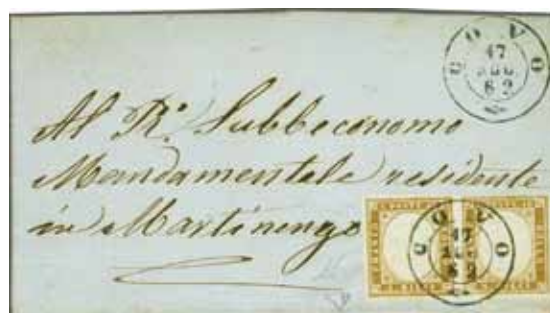 COVO
17
AGO
62
Al R.º Subbeconomo
Mandamentale residente
in Martinengo
COVO
17
AGO
62